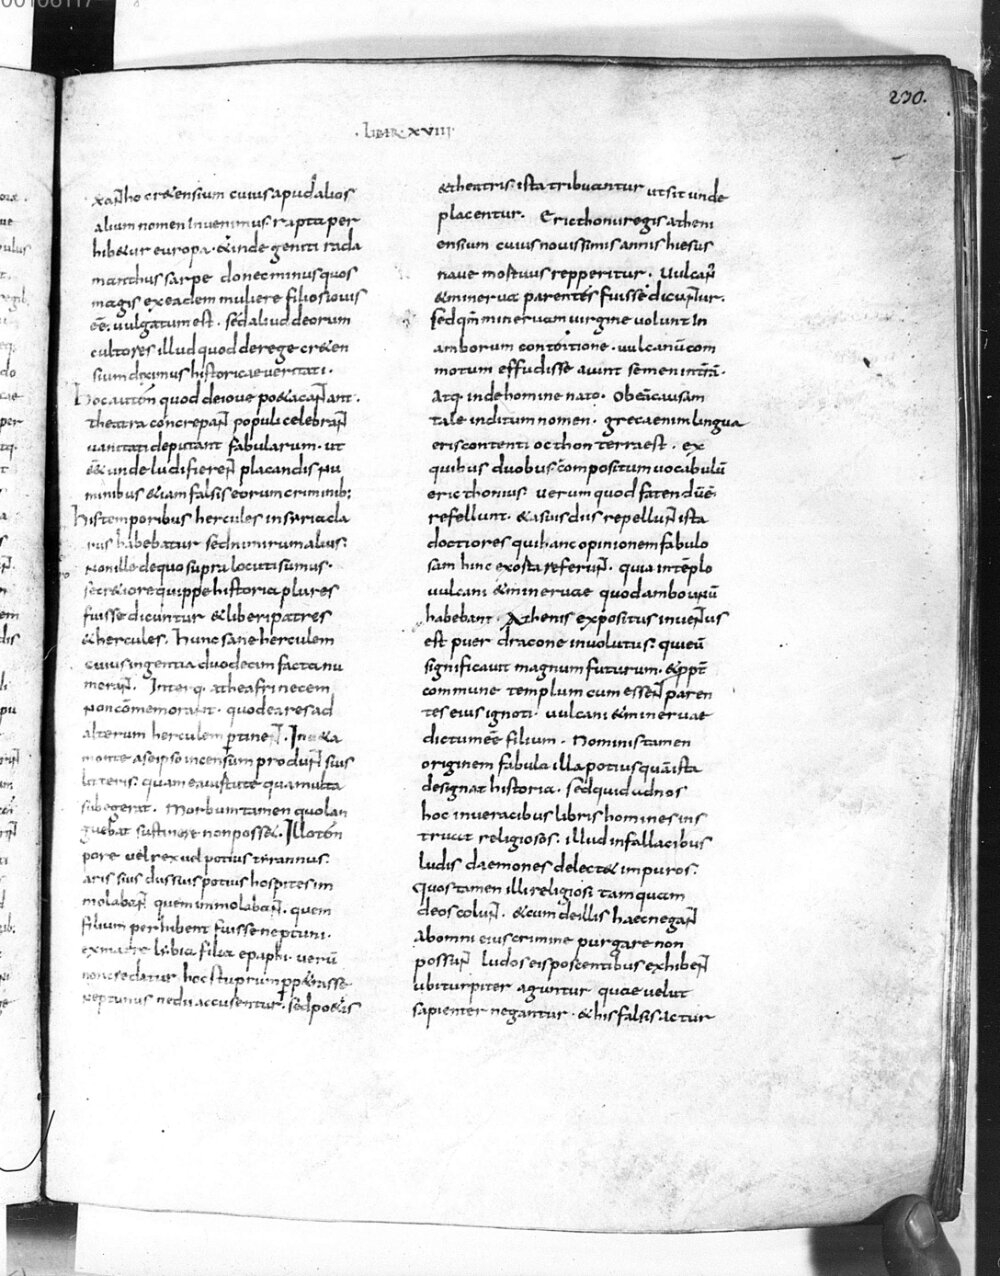 230.
· LIBER · XVIII ·
xan̄ho cr&ensium cuius apud alios
alium nomen Inuenimus rapta per
hib&ur europa · &inde geniti rada
manthus sarpe don&minus quos
magis exeadem muliere filios iouis
eē uulgatum est · sed aliud deorum
cultores illud quod derege cr&en
sium ducimus historicae ueritati ·
Hoc autem quod deioue po&ae can̄ant ·
theatra concrepan̄ populi celebran̄
uanitati deputant fabularum · ut
e& unde ludi fieren̄ placandis nu
minibus &iam falsis eorum criminib;
Histemporibus hercules insyria cla
rus habebatur sed nimirum alius ·
non ille dequo supra locuti sumus ·
secr&iore quippe historia plures
fuisse dicuntur &liberi patres
&hercules · Hunc sane herculem
cuius ingentia duodecim facta nu
meran̄ · Inter q · athea fri necem
non cōmemorant · quod ea res ad
alterum herculem ꝑtinen̄ · In o&a
monte aseipso incensum produn̄ suis
litteris · quam ea uirtute qua multa
subegerat · Morbum tamen quo lan
guebat sustinere non poss& · Illo tem
pore uel rex uel potius tyrannus
aris suis dussuis potius hospites im
molaban̄ quem immolaban̄ · quem
filium perhibent fuisse neptuni ·
ex matre libia filia epaphi · uerū
non sed atur hoc stuprum ꝑp&rasse
neptunus nedii accusentur · sed po&is
&theatris · ista tribuantur ut sit unde
placentur · Ericthoni regis atheni
ensium cuius nouissimis annis hiesus
naue mortuus repperitur · Uulcan̄
&minerua parentes fuisse dicun̄tur ·
sed qm̄ mineruam uirgine uolunt In
amborum contentione · uulcanū com
motum effudisse aiunt semen in terrā ·
Atq · inde homine nato · Ob eā causam
tale inditum nomen · greca enim lingua
eris contenti octhon terra est · ex
quibus duobus compositum uocabulū
eric thonius · uerum quod fatendū ē
refellunt · &a suis diis repellun̄ ista
doctiores qui hanc opinionem fabulo
sam hinc exorta referun̄ · quia in teplo
uulcani &mineruae quod ambo unū
habebant · Athenis expositus inuen̄tus
est puer dracone inuolutus · qui eū
significauit magnum futurum · &ppt̄
commune templum cum essen̄ paren
tes eius ignoti · uulcani &mineruae
dictum eē filium · Nominis tamen
originem fabula illa potius quā ista
designat historia · sed quid ad nos
hoc in ueracibus libris homines ins
truat religiosos · illud in fallacibus
ludis daemones delect& impuros ·
Quos tamen illi religiosi tamquam
deos colun̄ · &cum de illis haec negan̄
Ab omni eius crimine purgare non
possun̄ ludos eis poscentibus exhiben̄
ubi turpiter aguntur quae uelut
sapienter negantur · &his falsis ac tur